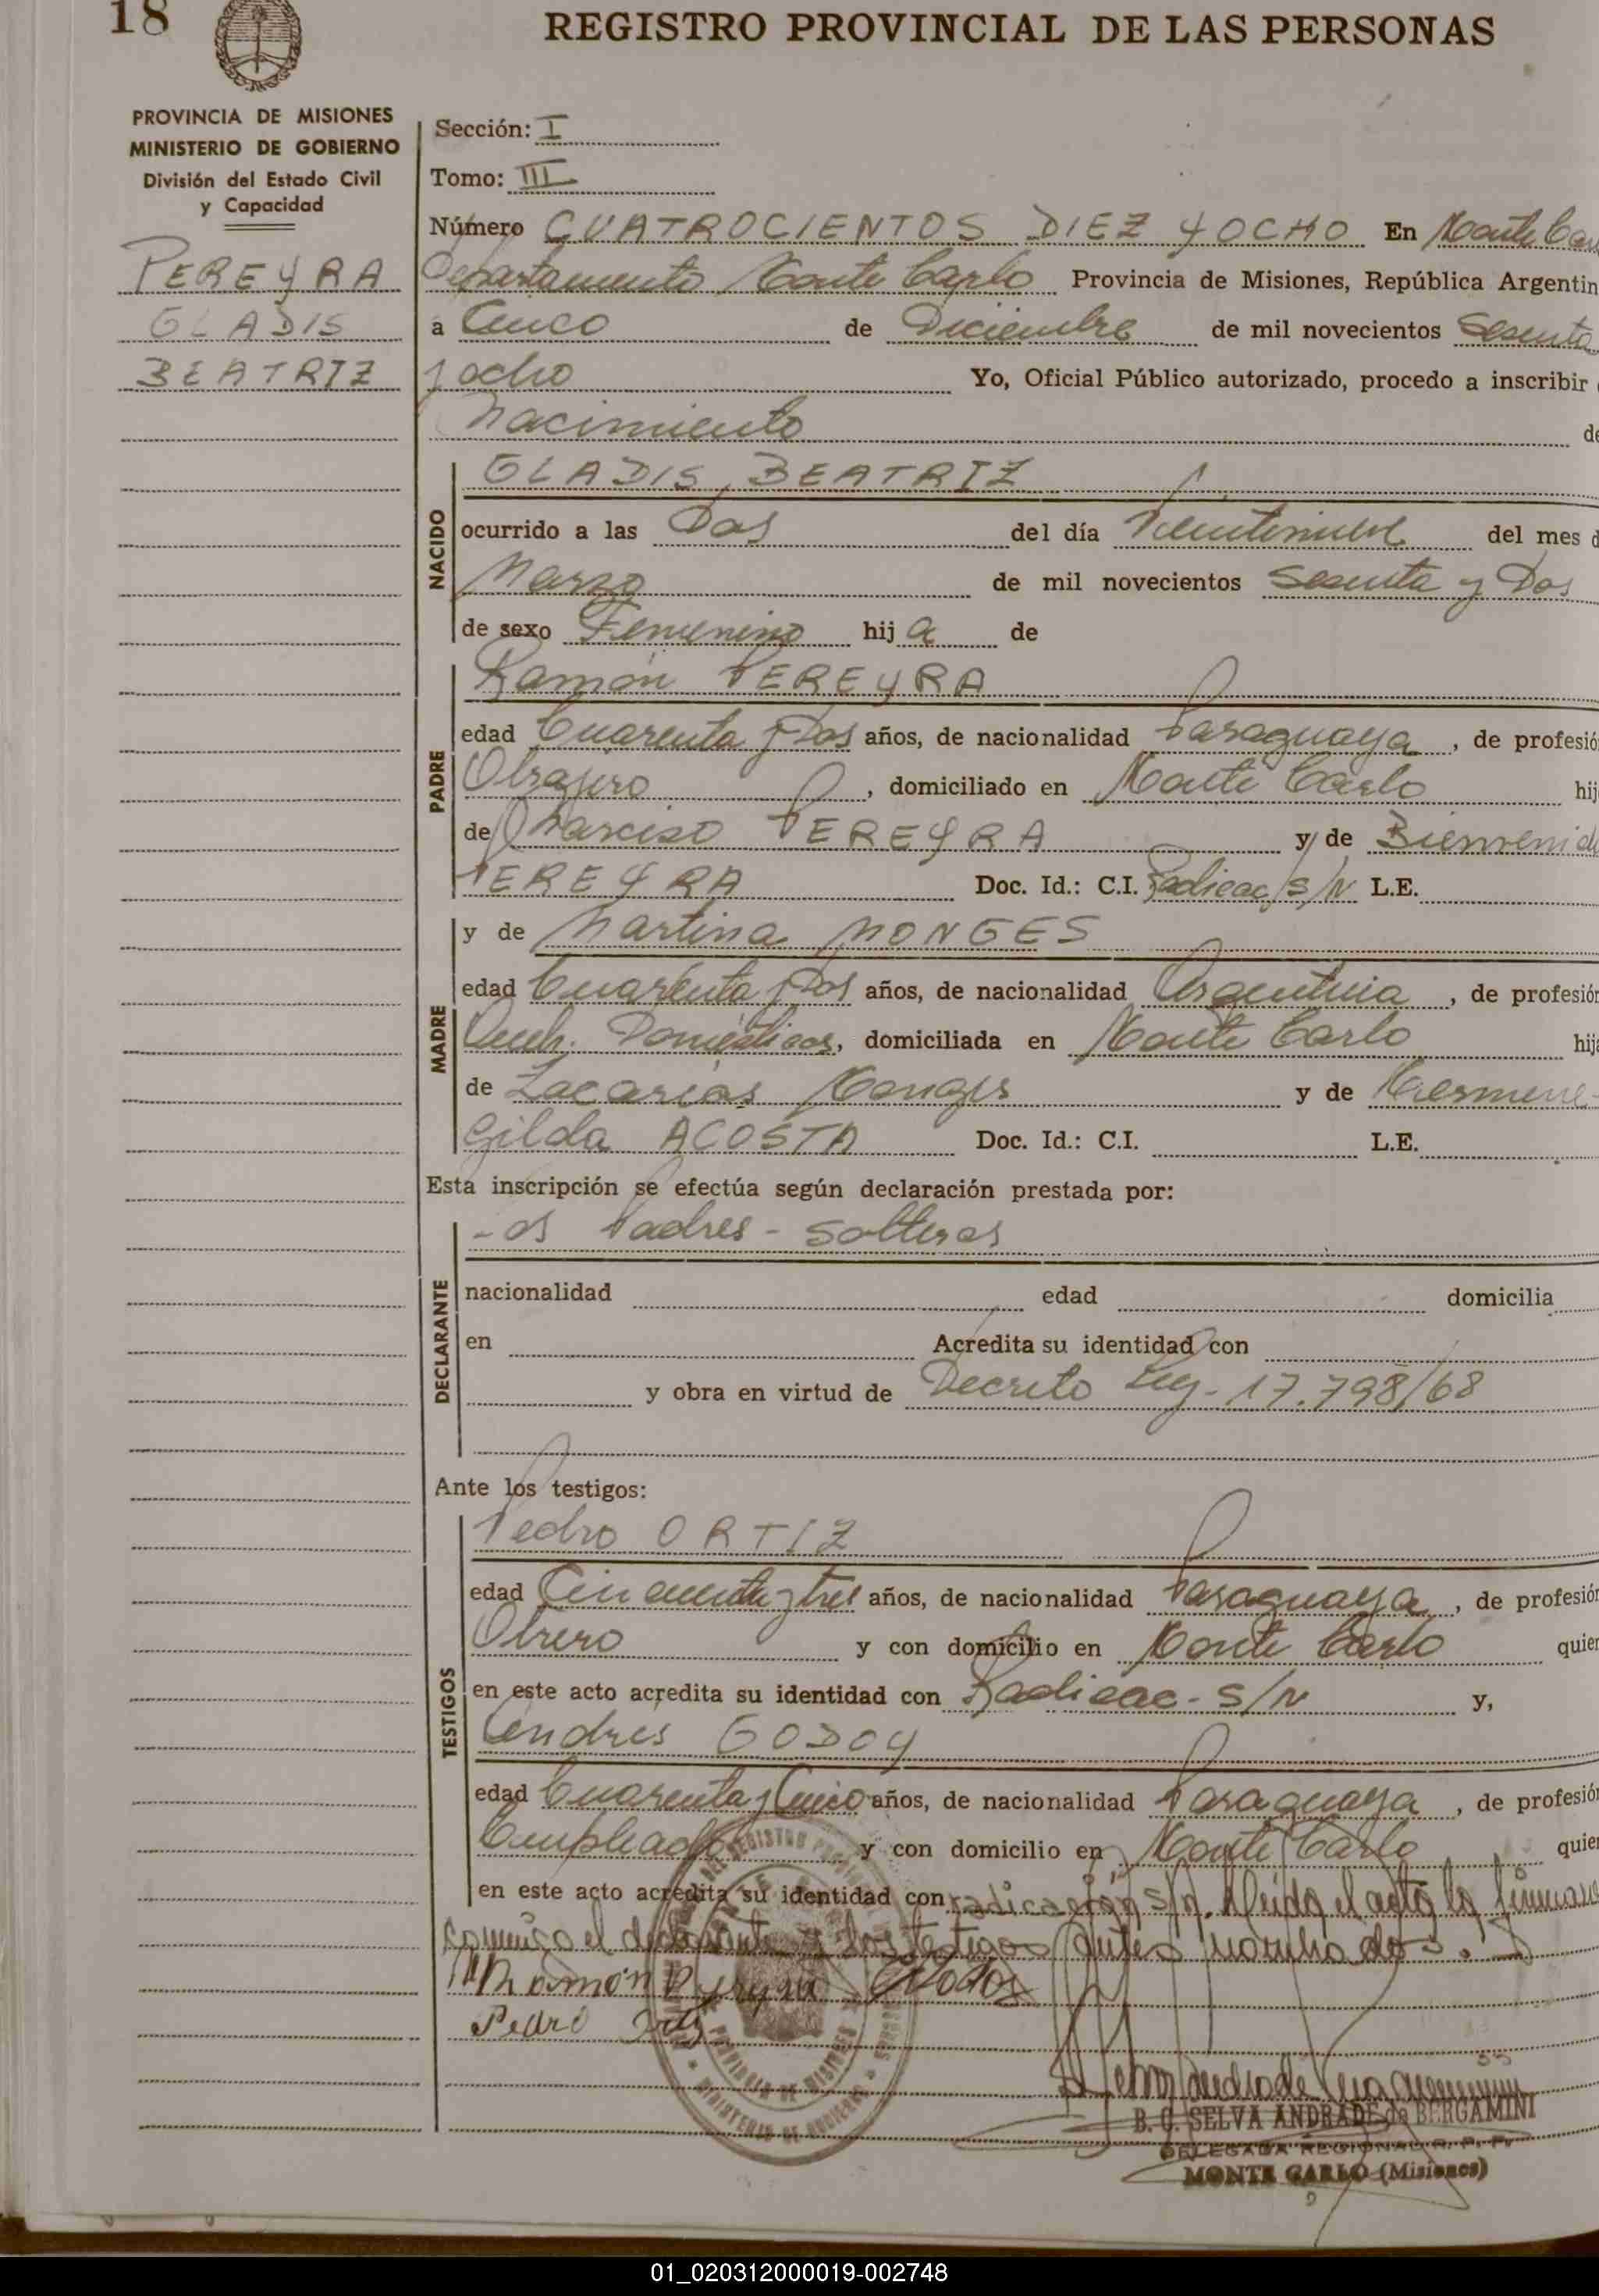 18
REGISTRO PROVINCIAL DE LAS PERSONAS
PROVINCIA DE MISIONES
MINISTERIO DE GOBIERNO
División del Estado Civil
y Capacidad
PEREYRA
GLADIS
BEATRIZ
Sección: I
Tomo: III
Número CUATROCIENTOS DIEZ Y OCHO En Monte Car
Departamento Monte Carlo Provincia de Misiones, República Argentin
a Cinco de Diciembre de mil novecientos Sesenta
y ocho Yo, Oficial Público autorizado, procedo a inscribir
Nacimiento de
NACIDO
GLADIS, BEATRIZ
ocurrido a las Dos del día Veintinueve del mes d
Marzo de mil novecientos Sesenta y Dos
de sexo Femenino hij a de
PADRE
Ramón PEREYRA
edad Cuarenta y Dos años, de nacionalidad Paraguaya, de profesió
Obrajero, domiciliado en Monte Carlo hij
de Narciso PEREYRA y de Bienvenid
PEREYRA Doc. Id.: C.I. Radicac/S/N L.E.
MADRE
y de Martina MONGES
edad Cuarenta y Dos años, de nacionalidad Argentina, de profesión
Queh. Domésticos, domiciliada en Monte Carlo hija
de Zacarías Monges y de Hermene-
gilda ACOSTA Doc. Id.: C.I. L.E.
Esta inscripción se efectúa según declaración prestada por:
DECLARANTE
Los Padres - Solteros
nacionalidad edad domicilia
en Acredita su identidad con
y obra en virtud de Decreto Ley - 17.798/68
Ante los testigos:
TESTIGOS
Pedro ORTIZ
edad Cincuenta y tres años, de nacionalidad Paraguaya, de profesión
Obrero y con domicilio en Monte Carlo quien
en este acto acredita su identidad con Radicac - S/N y,
Andres GODOY
edad Cuarenta y Cinco años, de nacionalidad Paraguaya, de profesión
Empleado y con domicilio en Monte Carlo quien
en este acto acredita su identidad con radicación s/n. Leída el acta la firman
conmigo el declarante y los testigos antes nombrados.
Ramón Pereyra
Pedro
PROVINCIA DE MISIONES
MINISTERIO DE GOBIERNO
B. G. SELVA ANDRADE de BERGAMINI
DELEGADA REGIONAL R. P. P.
MONTE CARLO (Misiones)
01_020312000019-002748